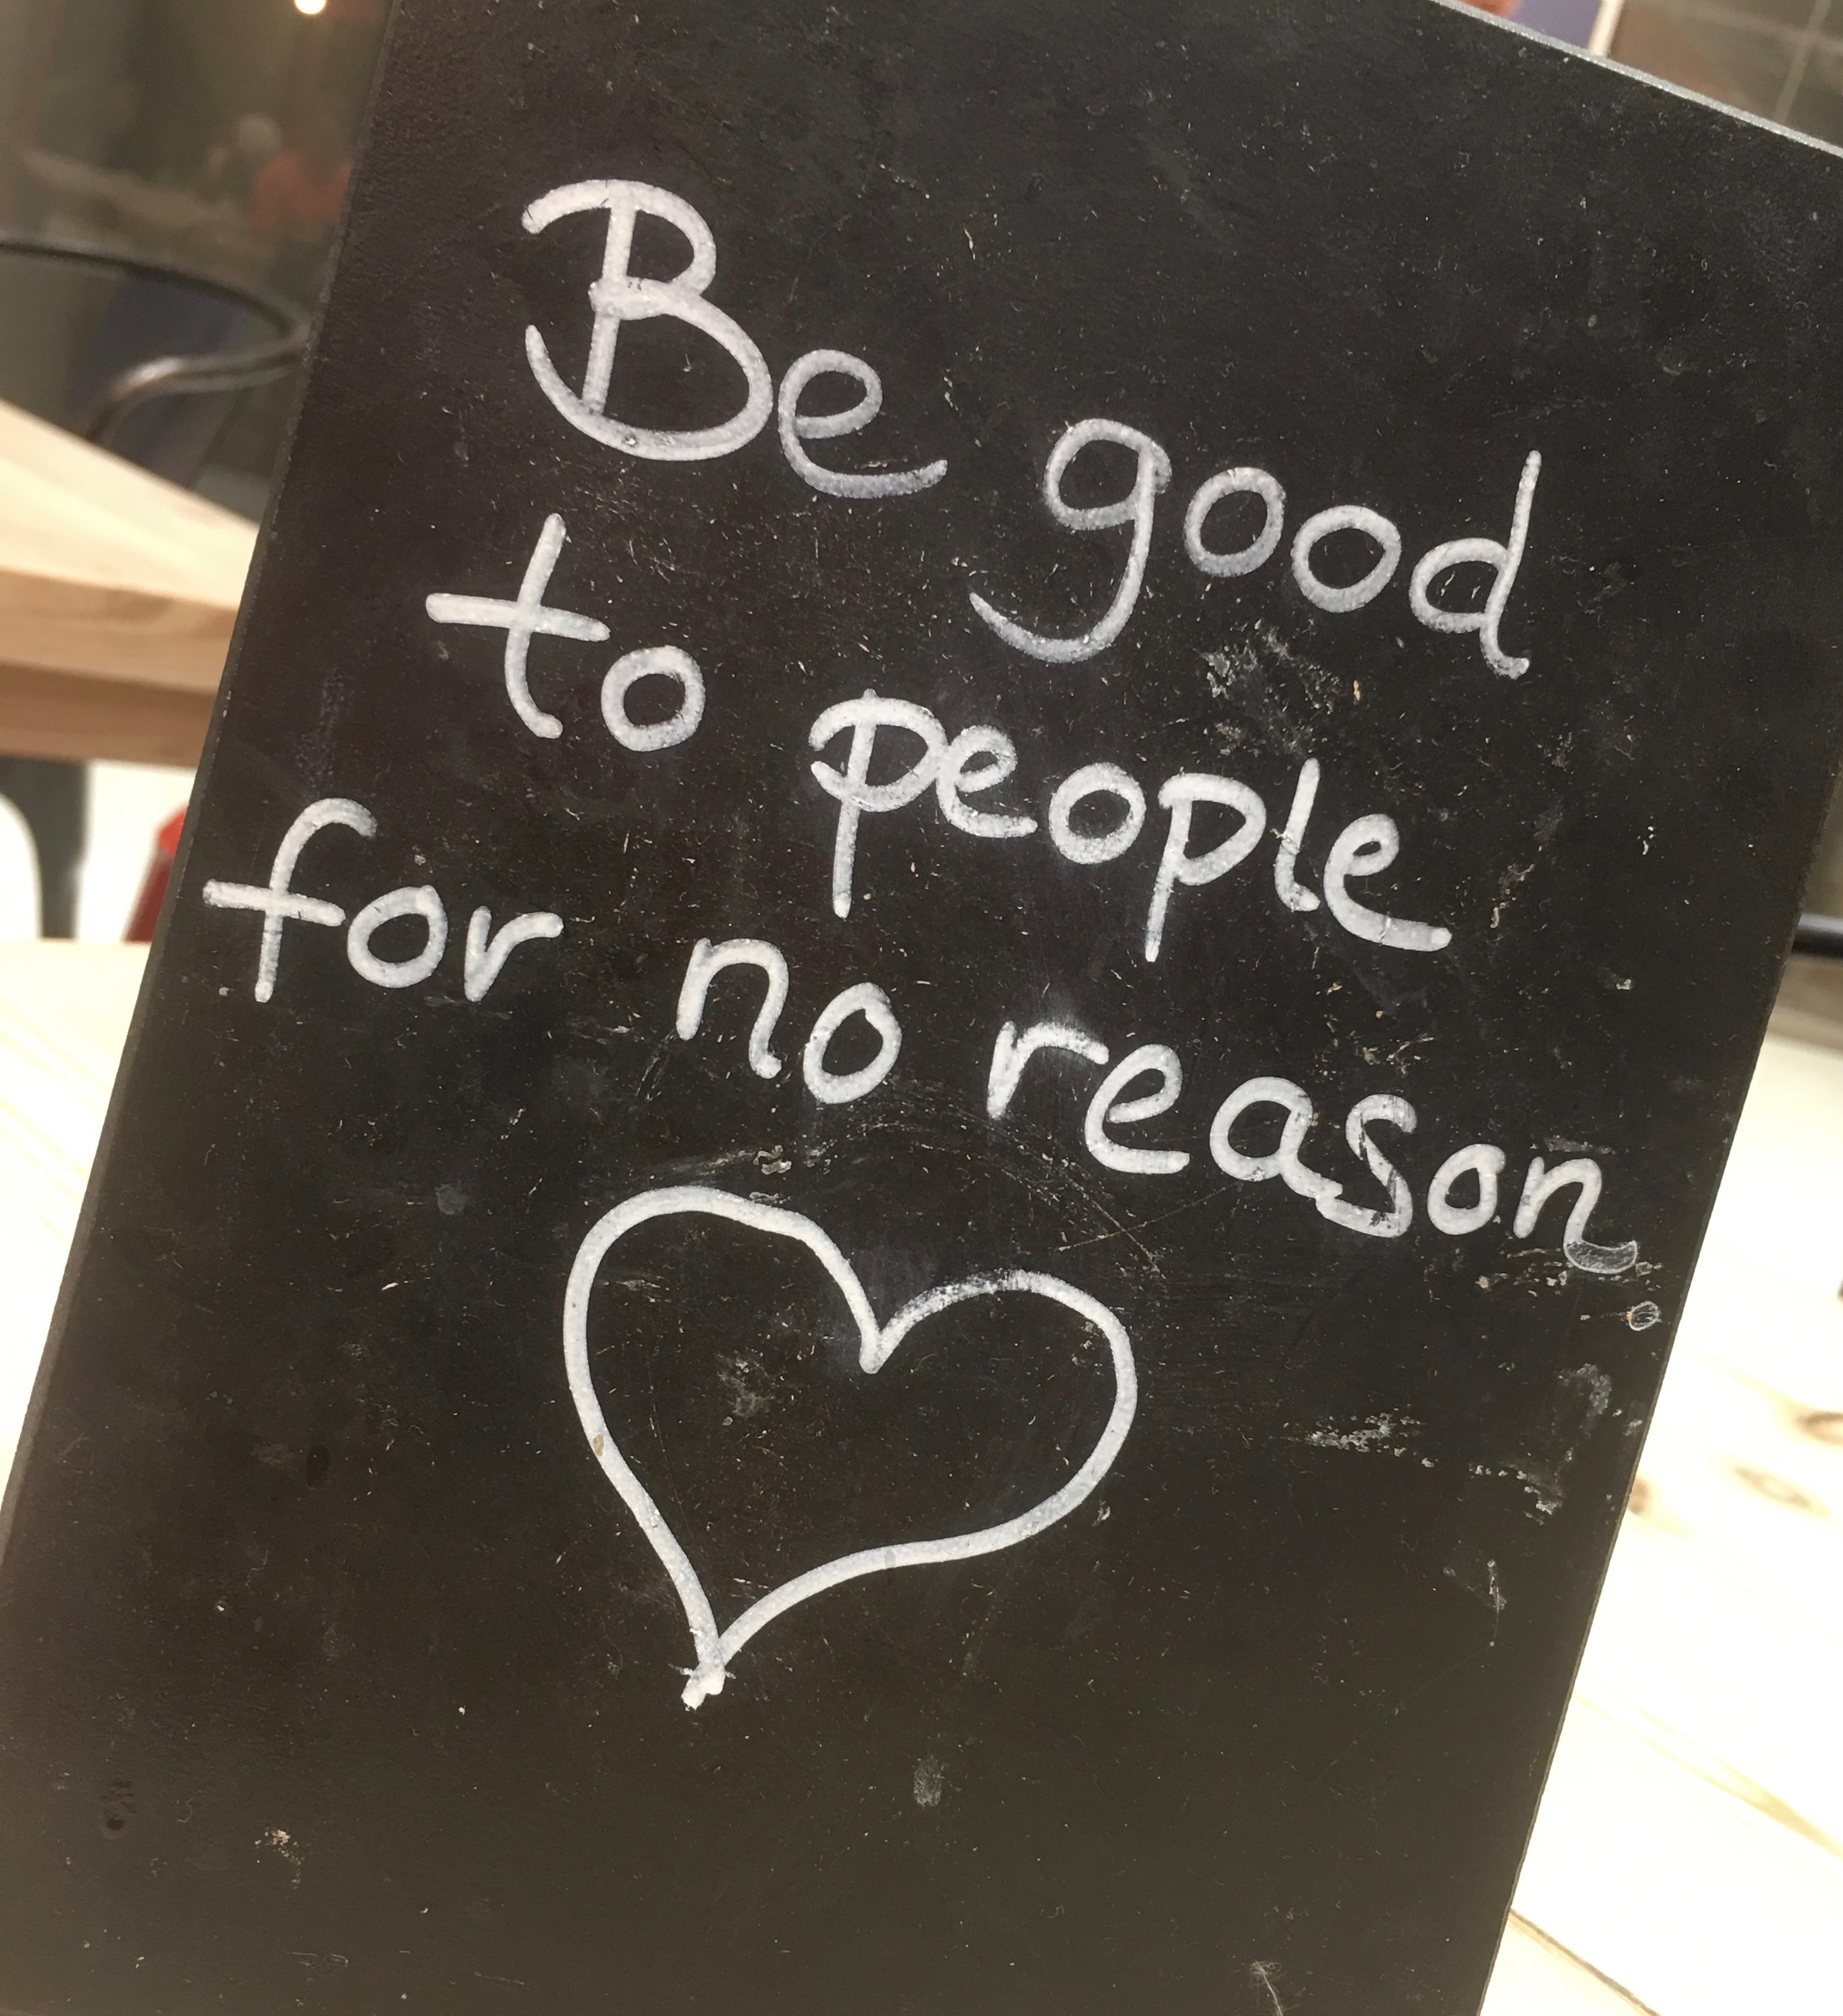 Be good
to people
for no reason